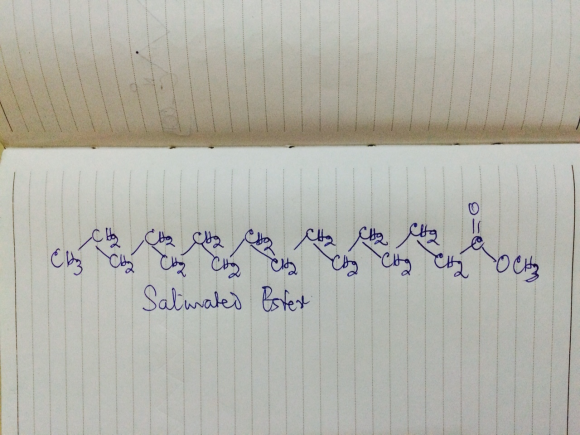 O
CH2 CH2 CH2 CH2 CH2 CH2 CH2 C
CH3 CH2 CH2 CH2 CH2 CH2 CH2 CH2 OCH3
Saturated Ester